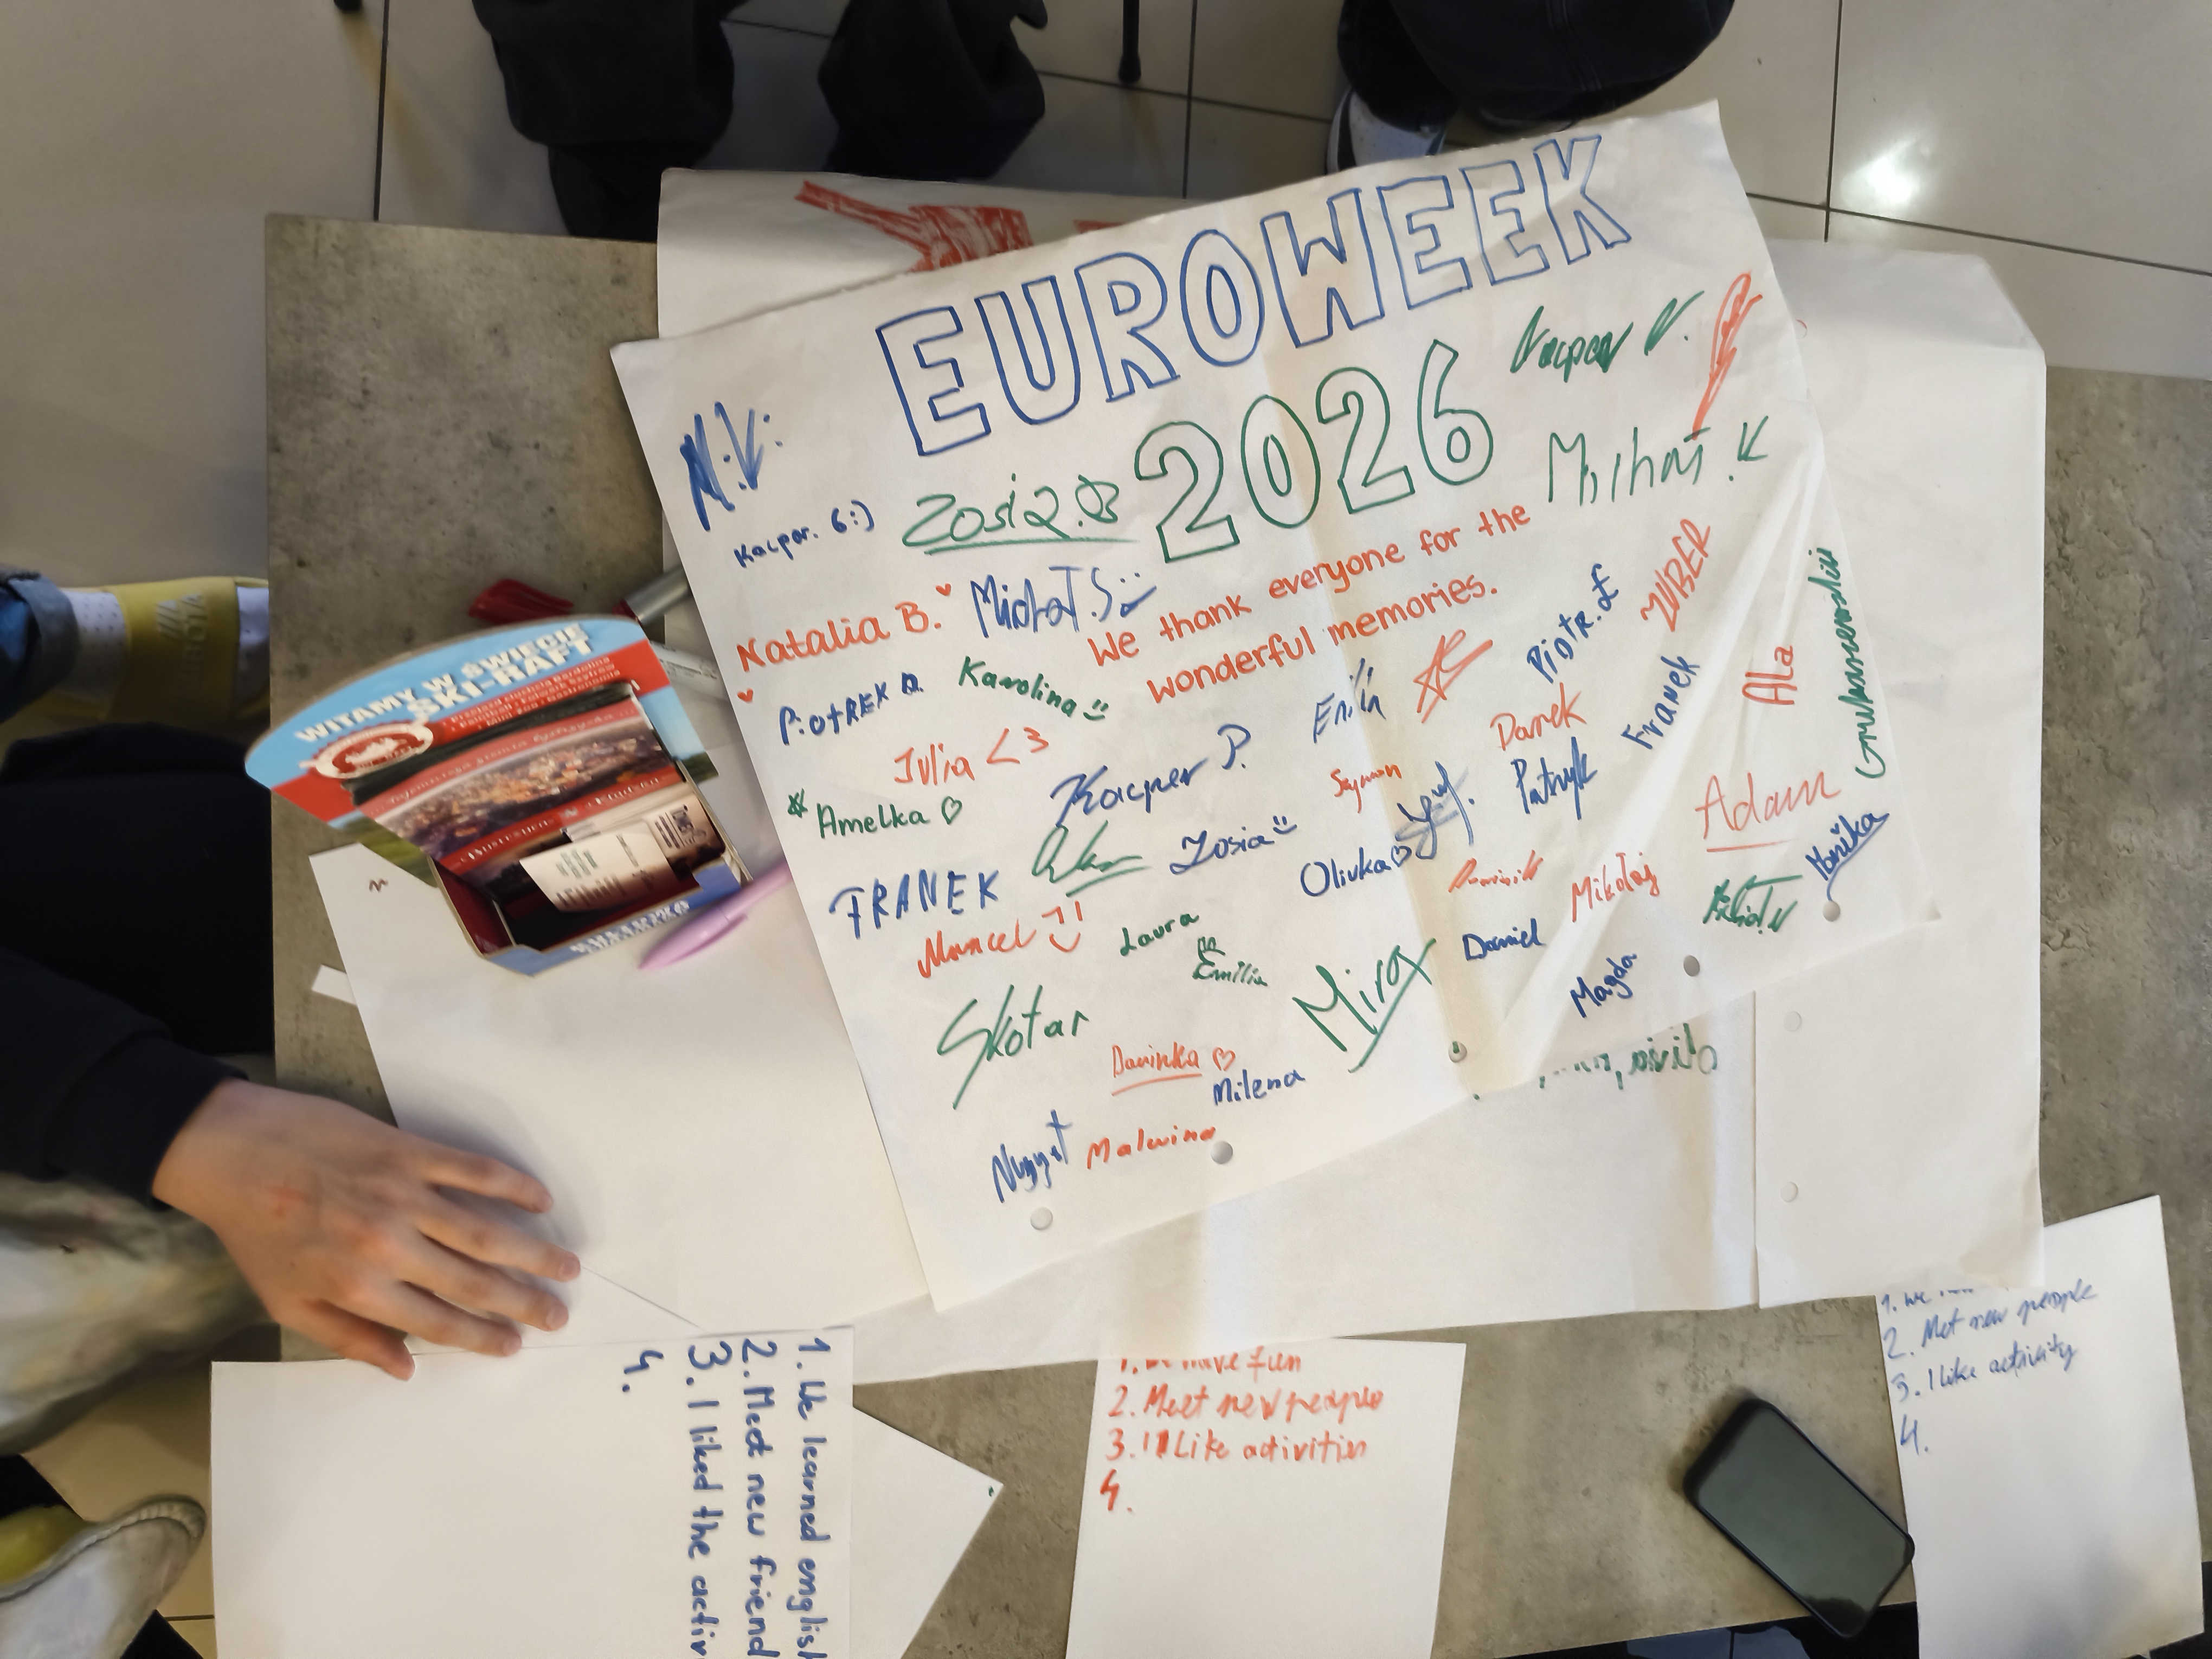 EUROWEEK
2026
Kacper V.
N.V.
Michał.K
Zosia.B
Kacper. G:)
We thank everyone for the
wonderful memories.
Natalia B.
Michał.S
ZUBER
Piotr.Ł
PiotREK
Karolina
Franek
Ala
Julia <3
Kacper P.
Darek
Szymon
Patryk
Adam
Amelka
Zosia
Oliwka
Monika
FRANEK
Marcel
Laura
Dominik
Mikołaj
Emilia
Daniel
Mira
Magda
Skotar
Darinka
Milena
Nugget
Malwina
WITAMY W ŚWIECIE
SKI-RAFT
1. We learned english
2. Meet new friend
3. I liked the activ
4.
1. We have fun
2. Meet new people
3. I Like activities
4.
1. We
2. Met new people
3. I like activity
4.